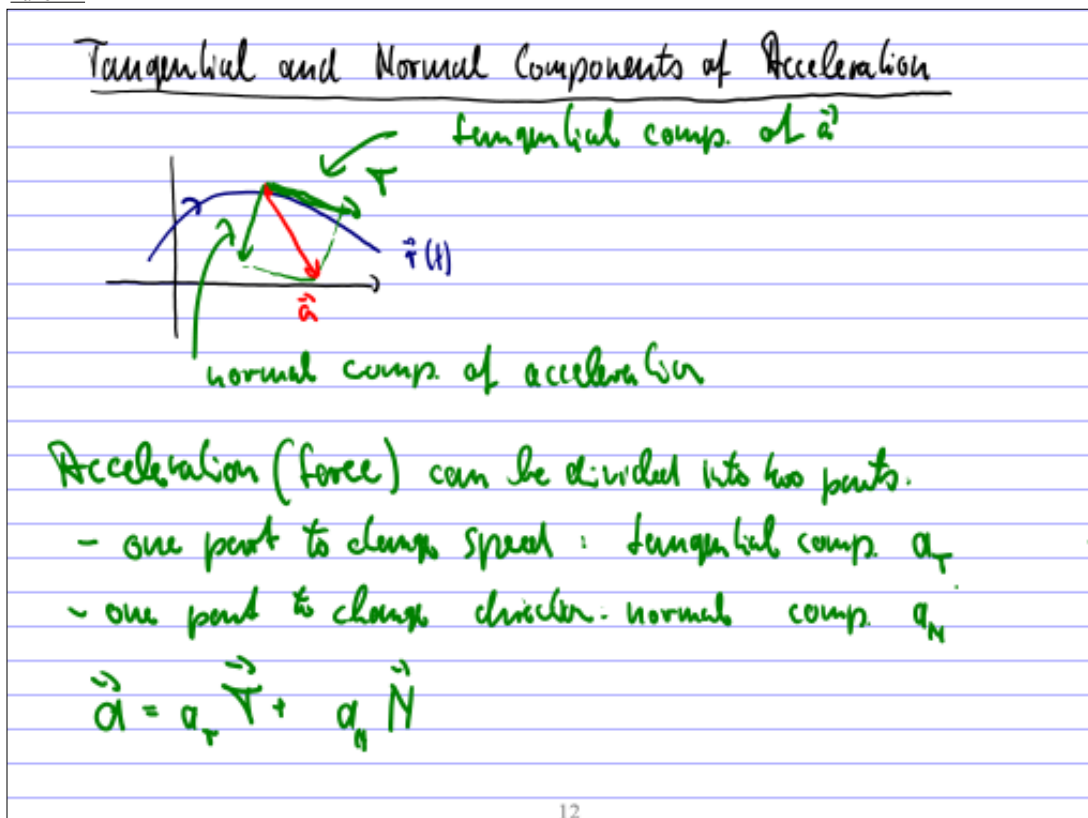 Tangential and Normal Components of Acceleration
tangential comp. of a⃗
T
r⃗(t)
a⃗
normal comp. of acceleration
Acceleration (force) can be divided into two parts.
- one part to change speed : tangential comp. a_T
- one part to change direction : normal comp. a_N
a⃗ = a_T T⃗ + a_N N⃗
12